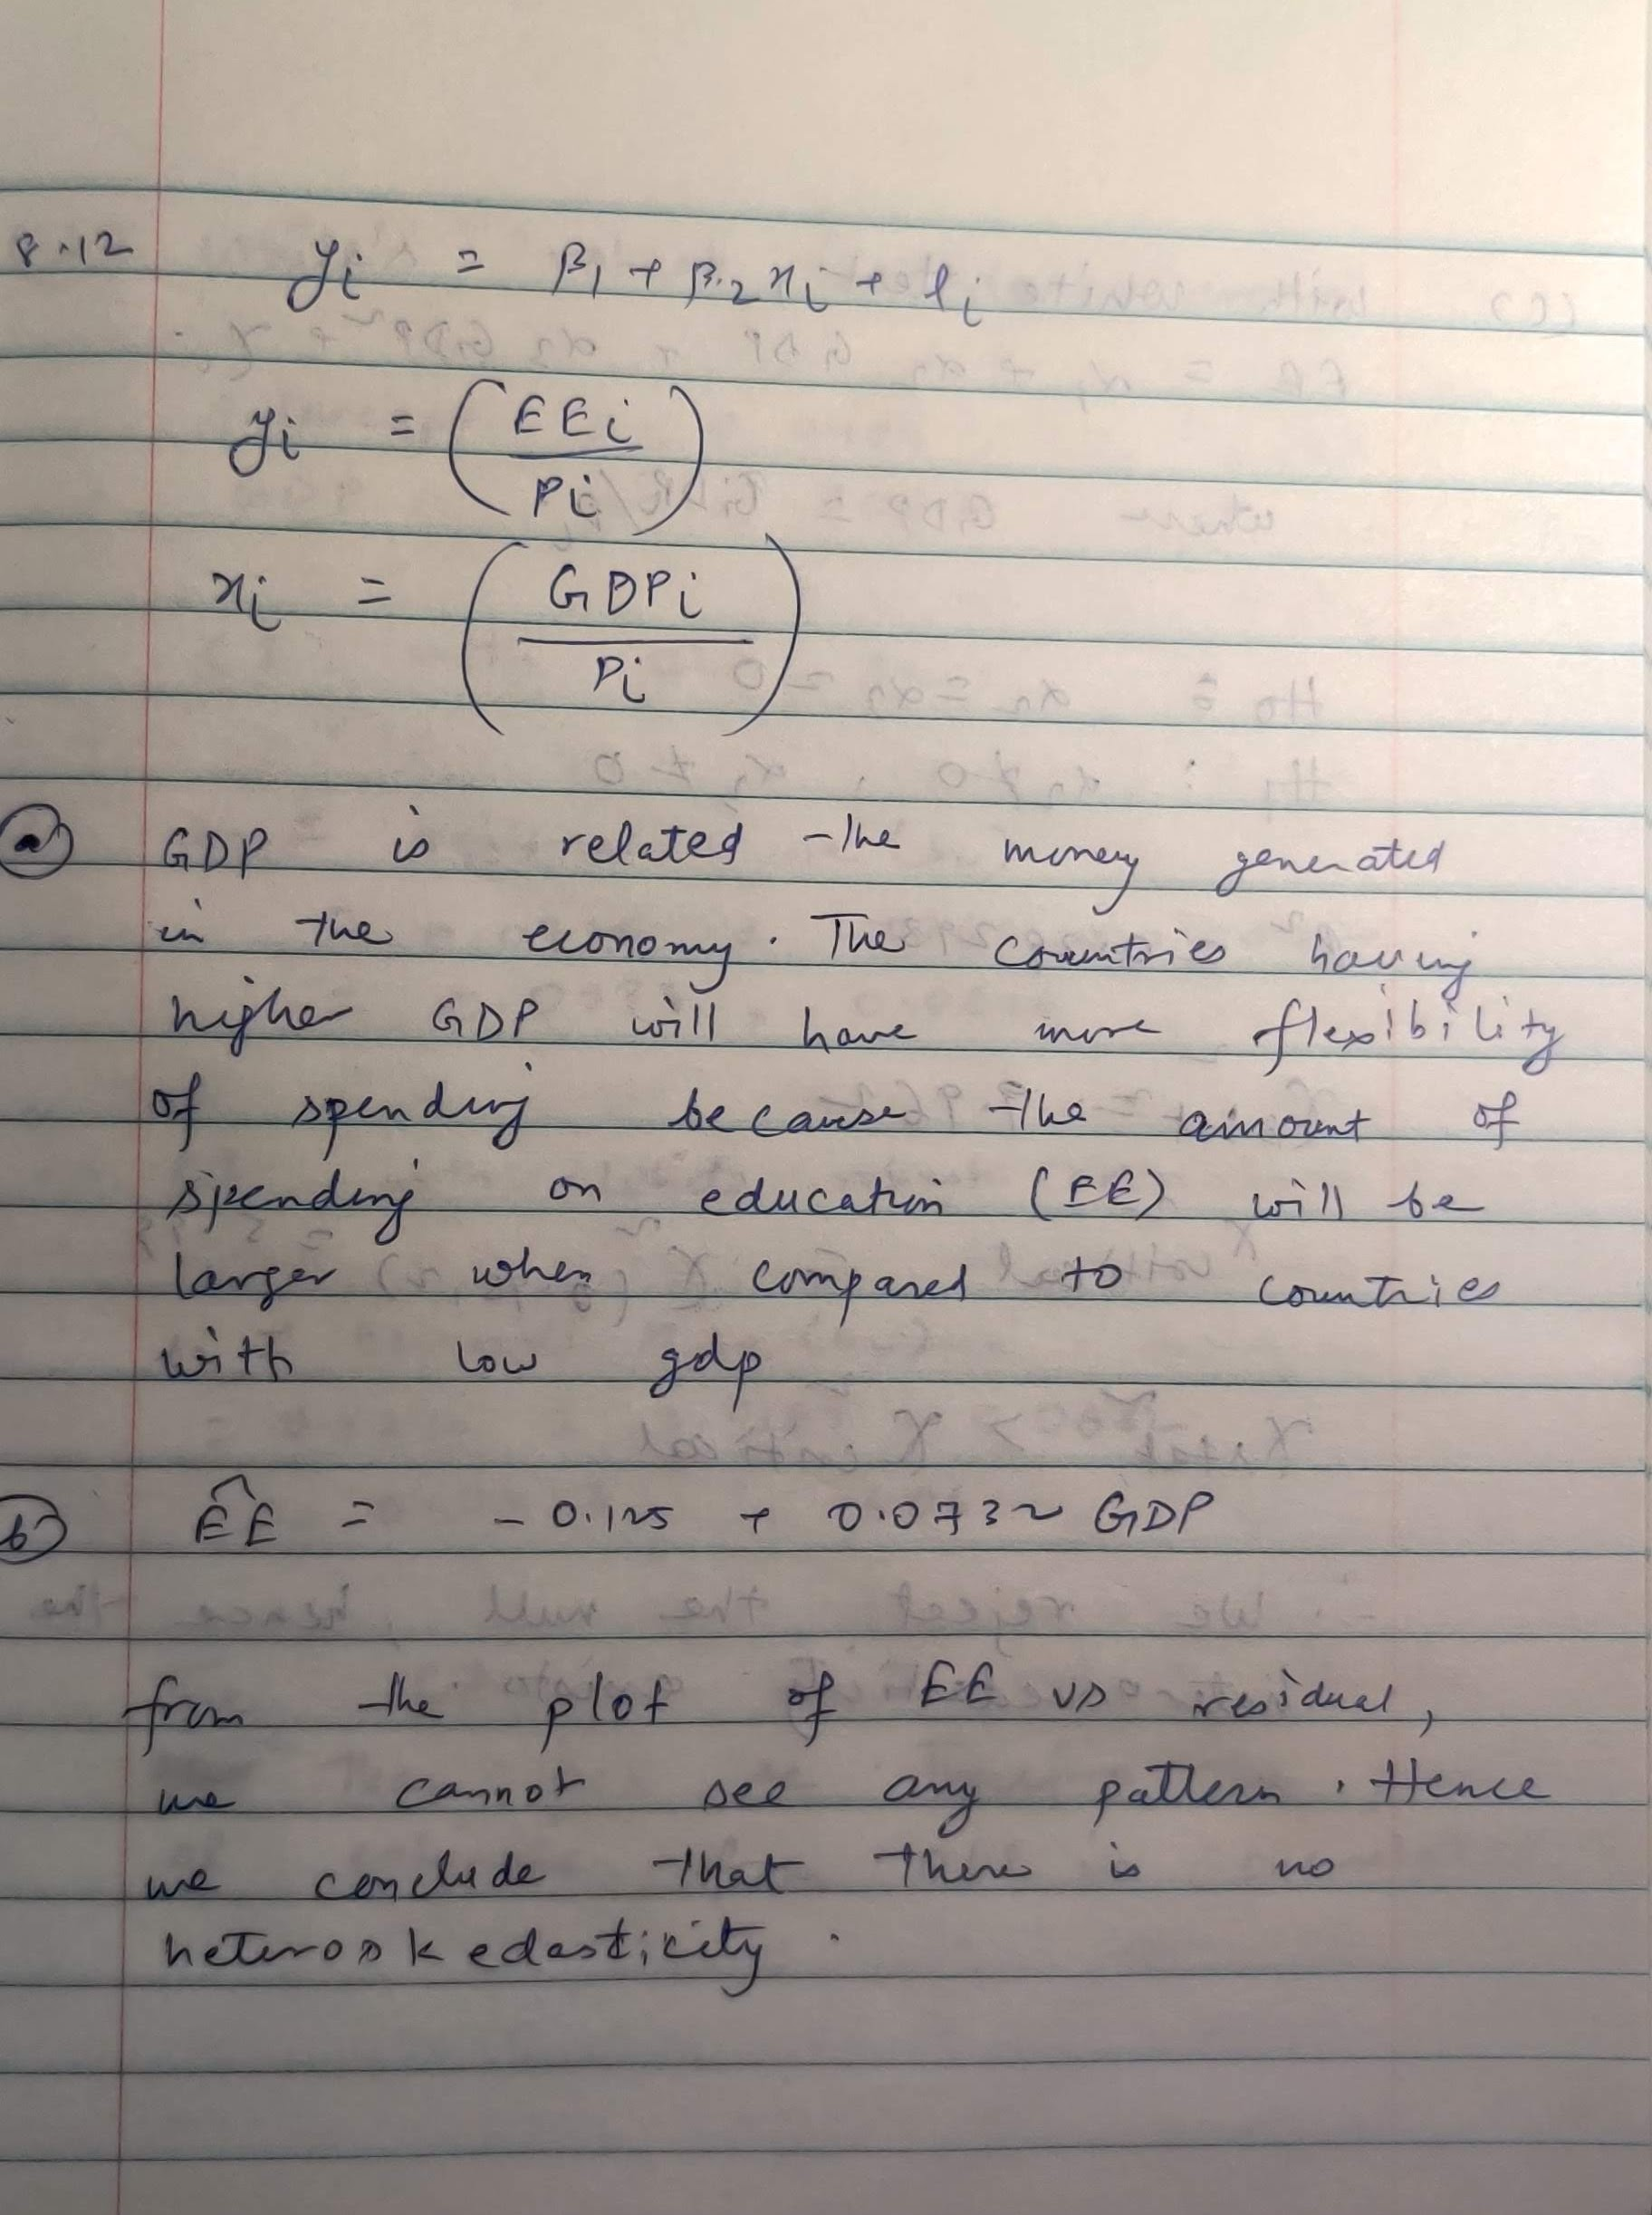 8.12 yi = β1 + β2xi + ei
yi = (EEi / Pi)
xi = (GDPi / Pi)
(a) GDP is related the money generated
in the economy. The countries having
higher GDP will have more flexibility
of spending because the amount of
spending on education (EE) will be
larger when compared to countries
with low gdp
(b) ÊE = -0.125 + 0.0732 GDP
from the plot of EE vs residual,
we cannot see any pattern. Hence
we conclude that there is no
heteroskedasticity.